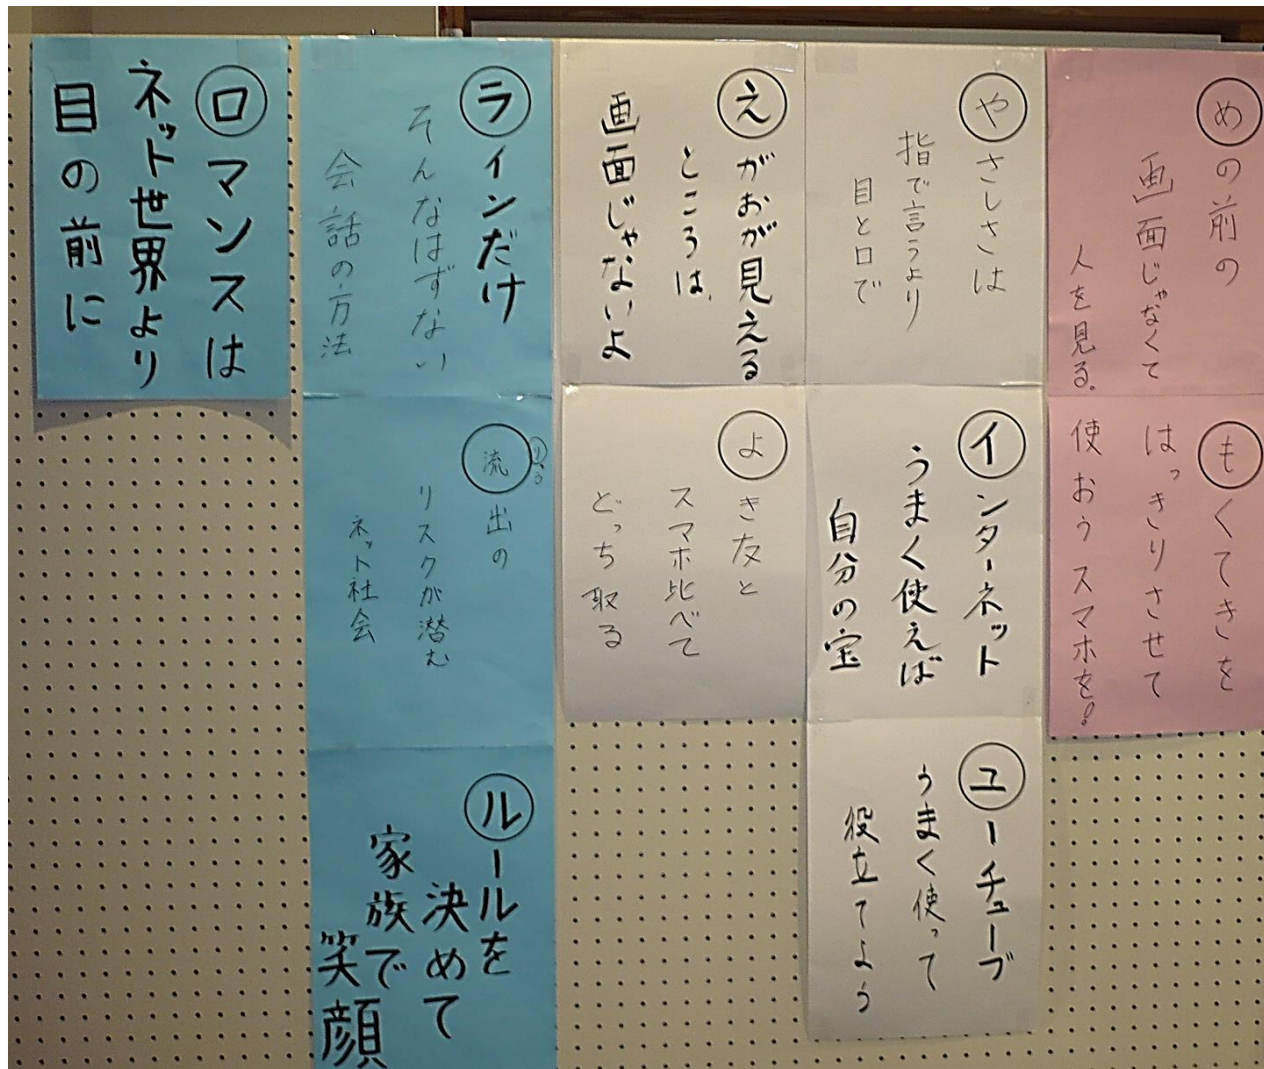 めの前の
画面じゃなくて
人を見る。
もくてきを
はっきりさせて
使おうスマホを!
やさしさは
指で言うより
目と口で
インターネット
うまく使えば
自分の宝
ユーチューブ
うまく使って
役立てよう
えがおが見える
ところは、
画面じゃないよ
よき友と
スマホ比べて
どっち取る
ラインだけ
そんなはずない
会話の方法
流出の
りゅう
リスクが潜む
ネット社会
ルールを
決めて
家族で
笑顔
ロマンスは
ネット世界より
目の前に